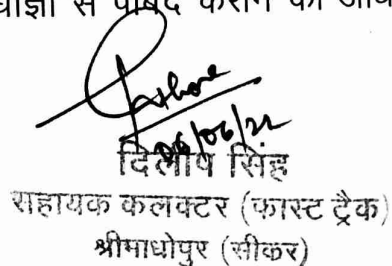 से पाबंद कराने का
06/06/22
दिलीप सिंह
सहायक कलक्टर (फास्ट ट्रैक)
श्रीमाधोपुर (सीकर)